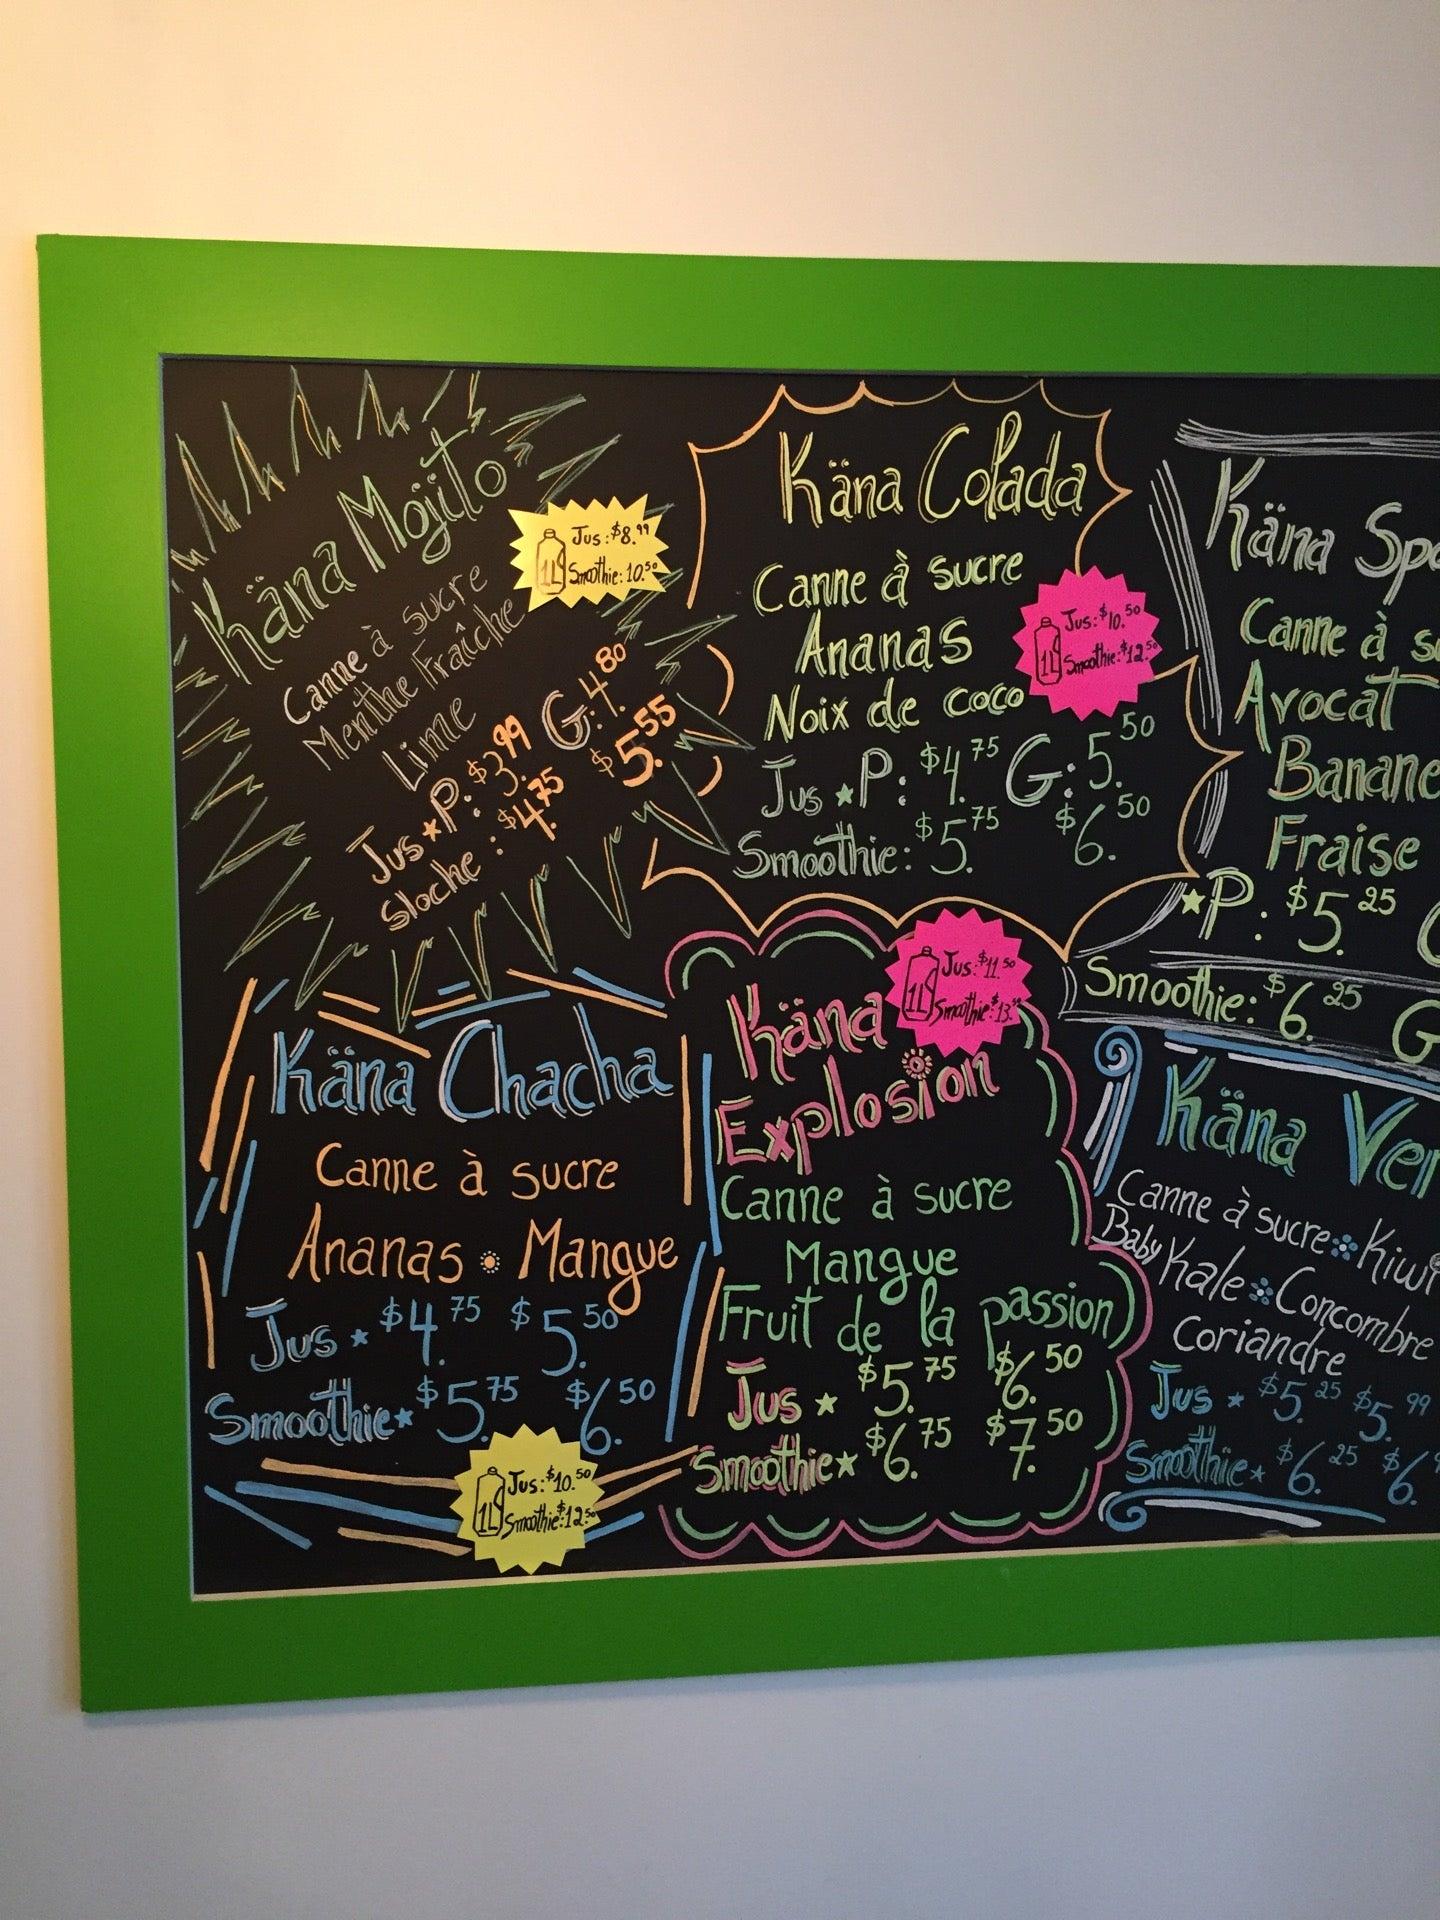 Käna Mojito
Canne à sucre
Menthe Fraîche
Lime
Jus ★ P: $3.99 G: 4.80
Sloche : $4.75 $5.55
Jus: $8.99
1L
Smoothie: 10.50
Käna Colada
Canne à sucre
Ananas
Noix de coco
Jus ★ P: $4.75 G: 5.50
Smoothie: $5.75 $6.50
Jus: $10.50
1L
Smoothie: $12.50
Käna
Canne à
Avocat
Banane
Fraise
★ P. $5.25
Smoothie: $6.25 G
Käna Chacha
Canne à sucre
Ananas Mangue
Jus ★ $4.75 $5.50
Smoothie ★ $5.75 $6.50
Jus: $10.50
1L
Smoothie: $12.50
Käna
Explosion
Canne à sucre
Mangue
Fruit de la passion
Jus ★ $5.75 $6.50
Smoothie ★ $6.75 $7.50
Jus: $11.50
1L
Smoothie: $13.
Käna
Canne à sucre Kiwi
Baby Kale Concombre
Coriandre
Jus ★ $5.25 $5.99
Smoothie ★ $6.25 $6.